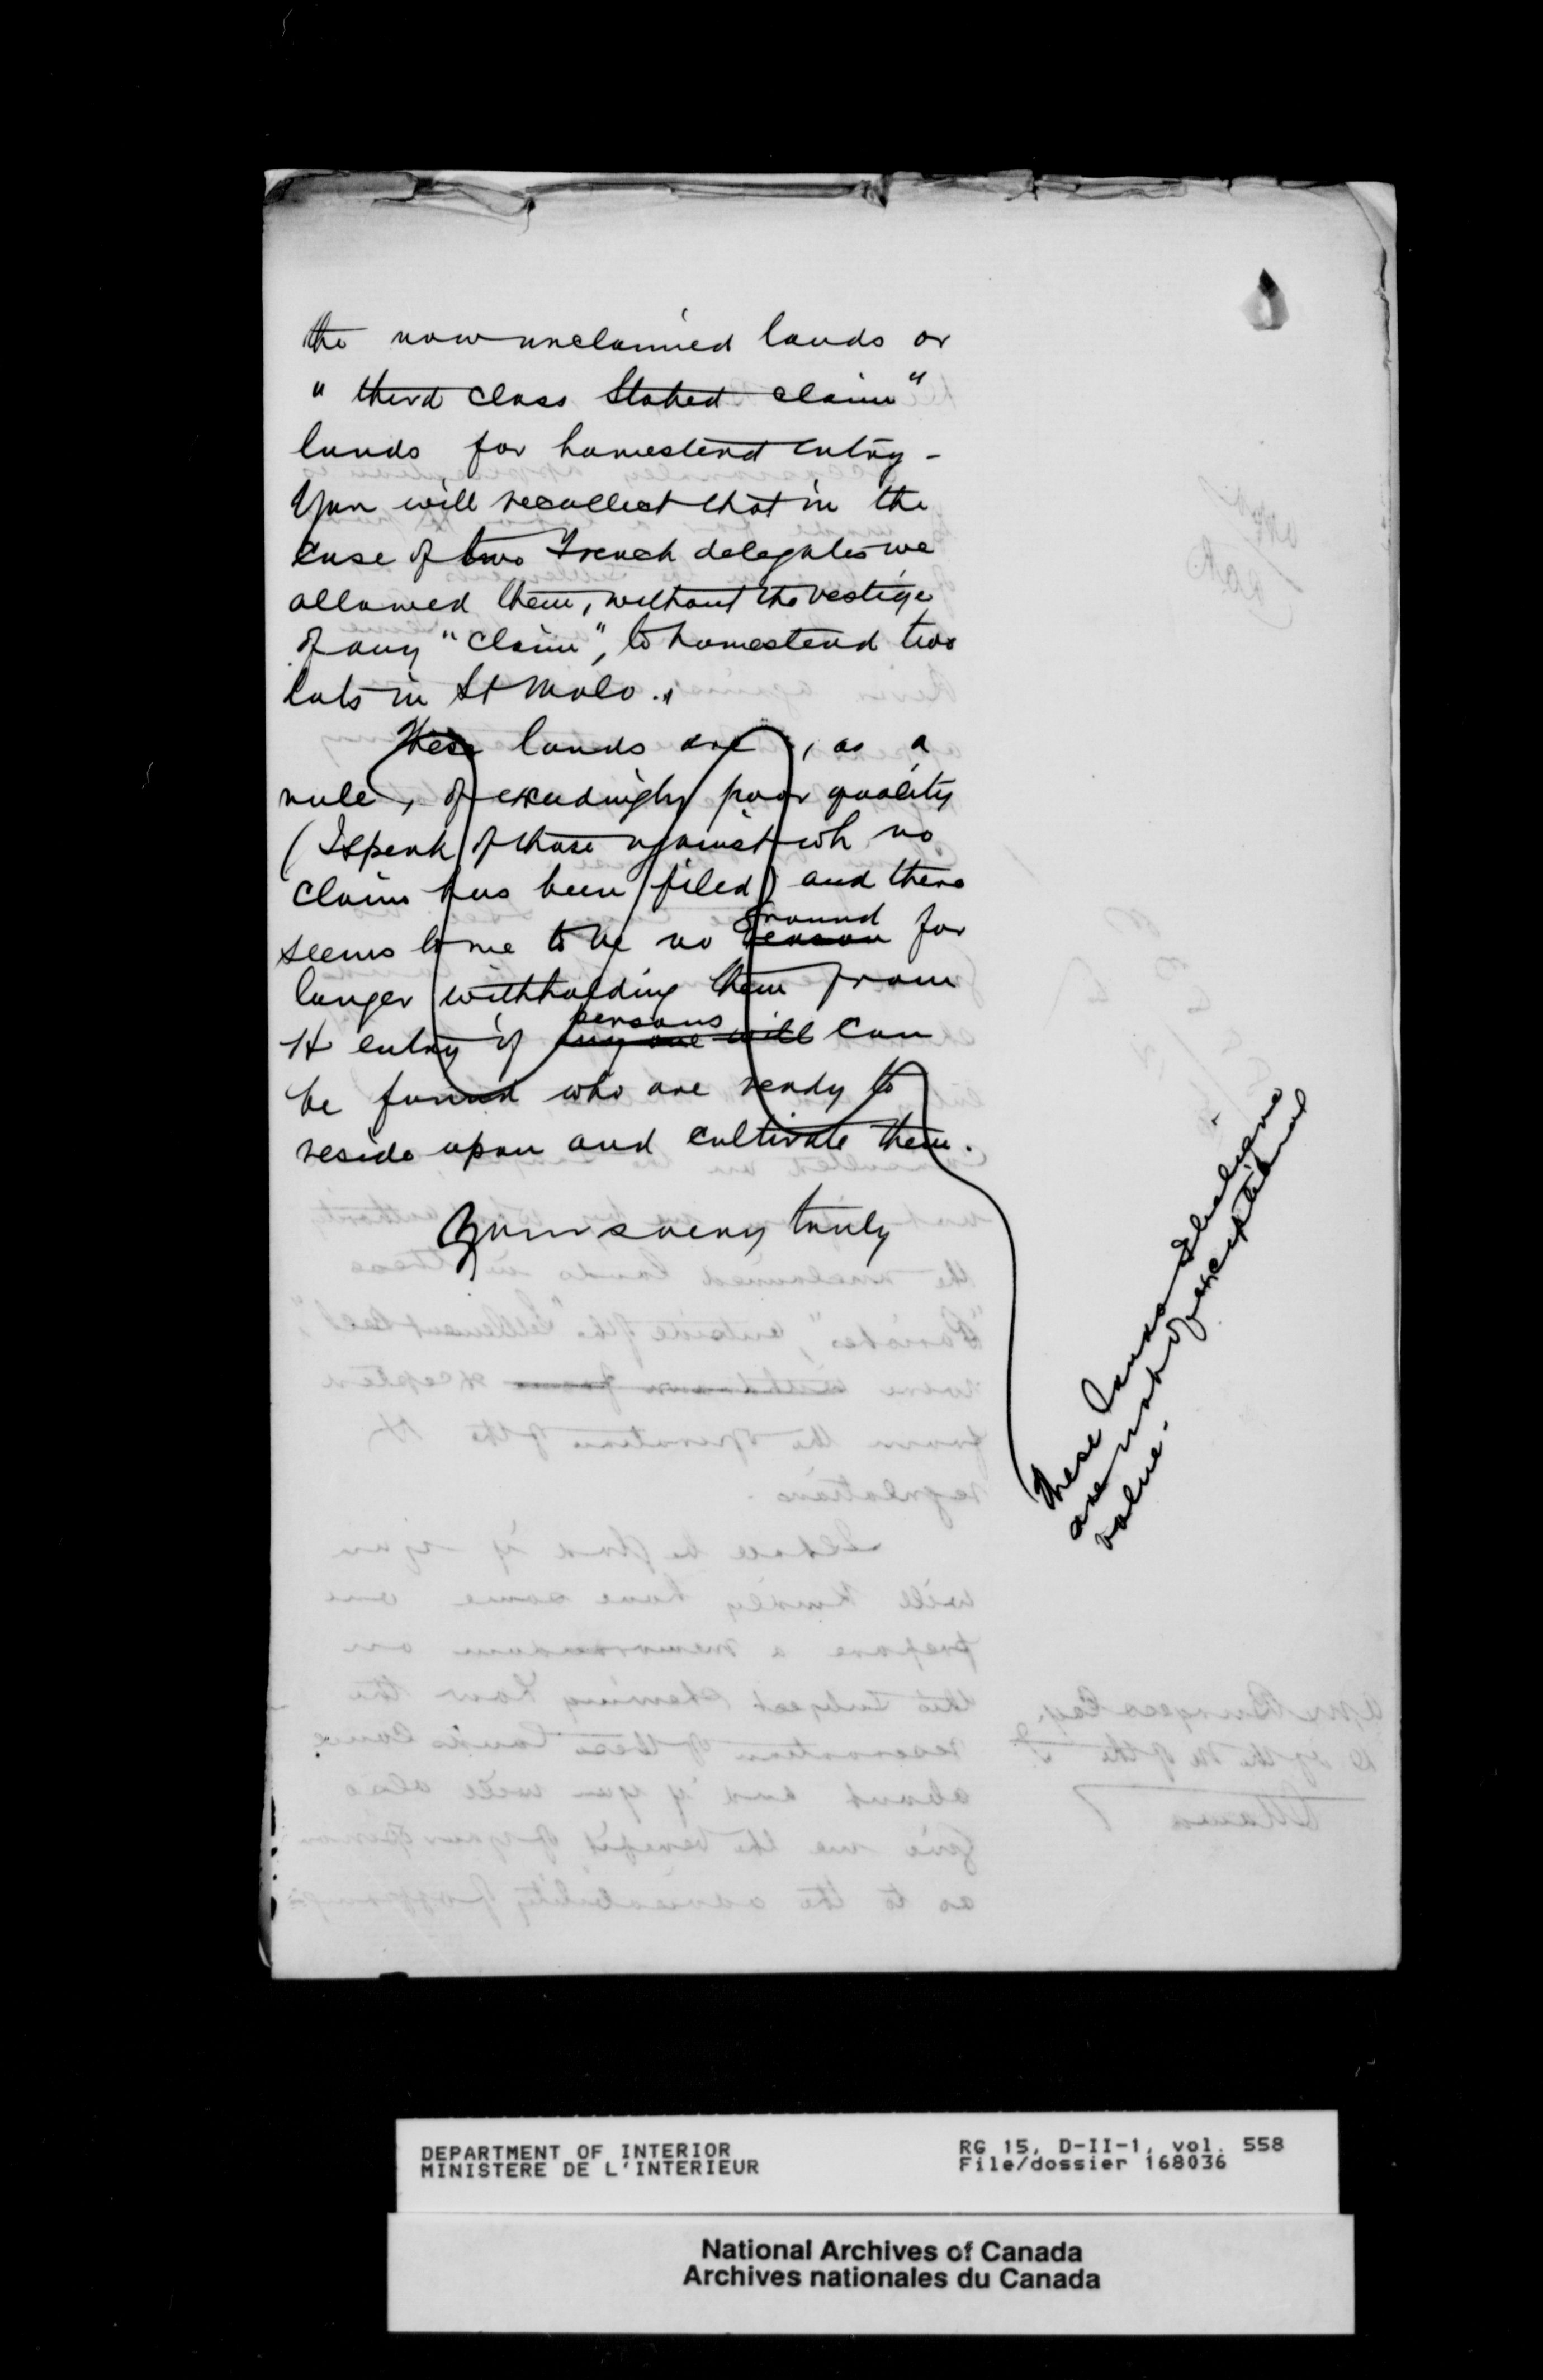 the now unclaimed lands or
" third class Staked claim "
lands for homestead entry -
You will recollect that in the
case of two French delegates we
allowed them, without the vestige
of any "claim", to homestead two
lots in St Malo.
These lands are, as a
rule, of exceedingly poor quality
(I speak of those against wh no
claim has been filed) and there
seems to me to be no reason ground for
longer withholding them from
H entry if any one will persons can
be found who are ready to
reside upon and cultivate them.
Yours very truly
These lands
are not of exceptional
value.
DEPARTMENT OF INTERIOR
MINISTERE DE L'INTERIEUR
RG 15, D-II-1, vol. 558
File/dossier 168036
National Archives of Canada
Archives nationales du Canada